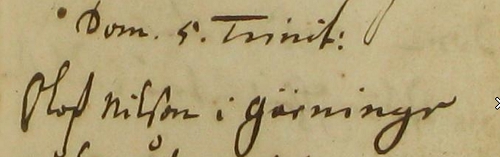 Dom. 5. Trinit:
Olof Nilson i Görninge